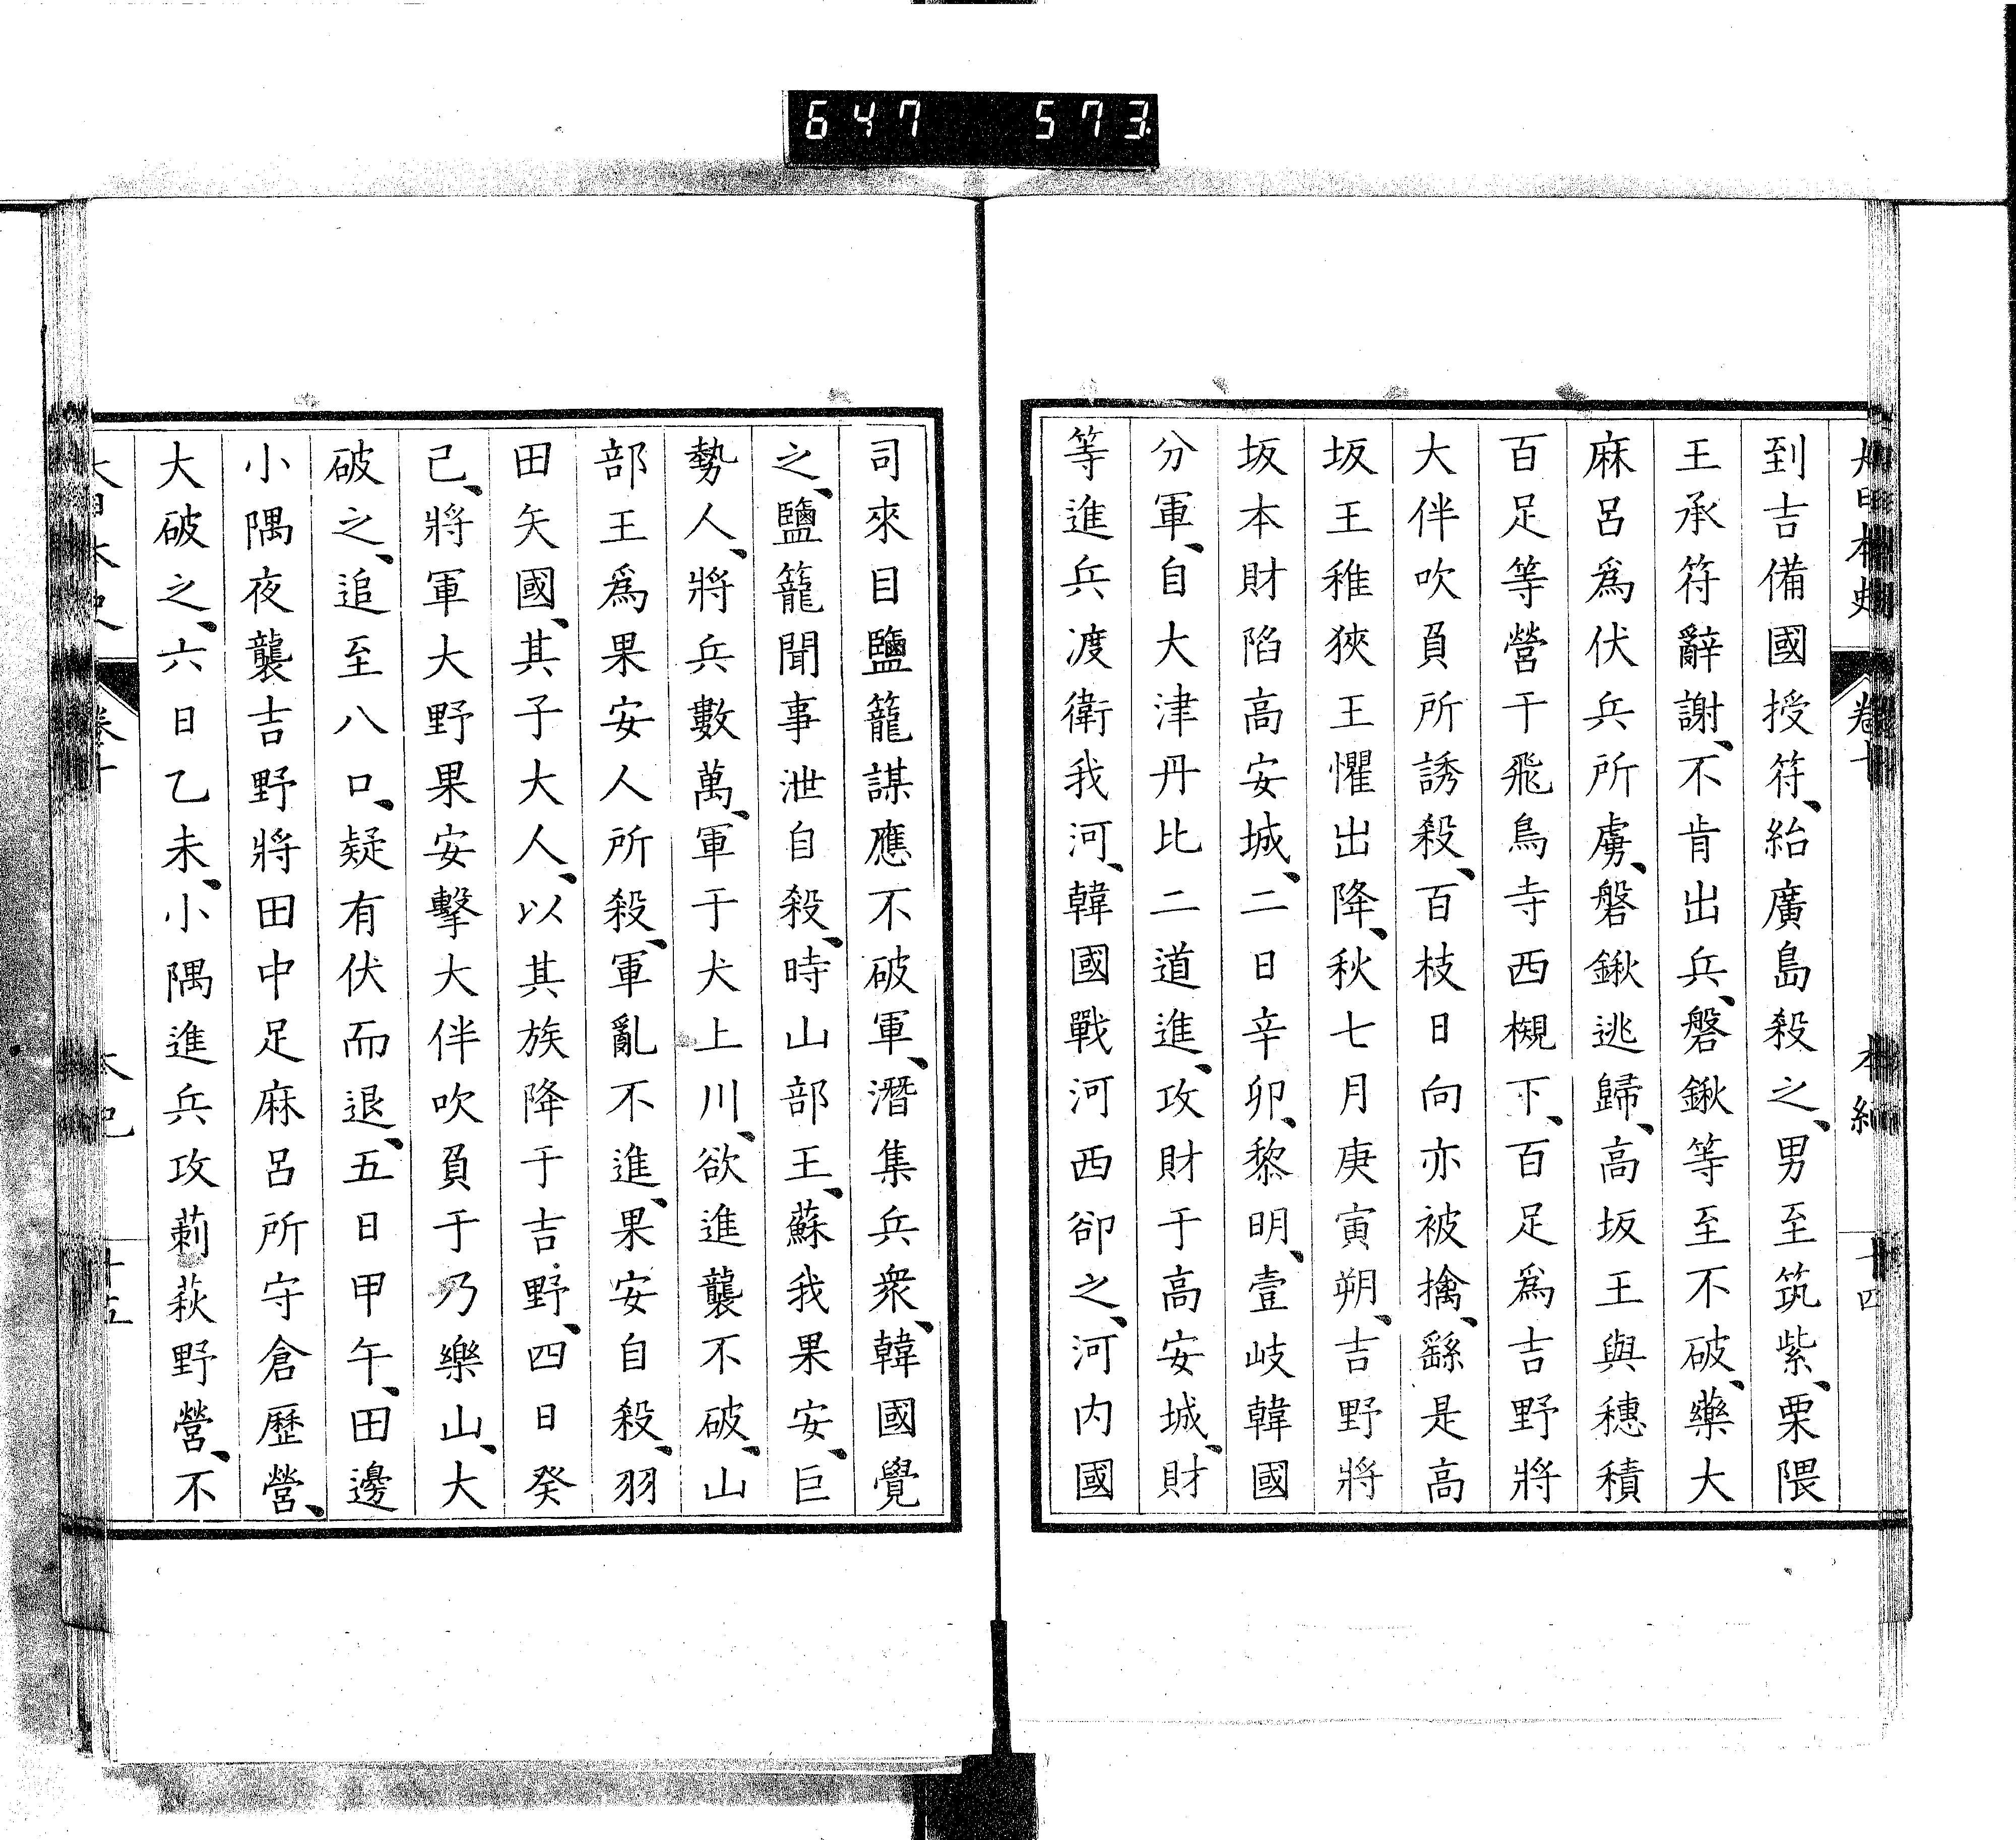 647 573
大日本史 卷十 本紀 十四
到吉備國授符、紿廣島殺之、男至筑紫、栗隈
王承符辭謝、不肯出兵、磐鍬等至不破、藥大
麻呂爲伏兵所虜、磐鍬逃歸、高坂王與穗積
百足等營于飛鳥寺西槻下、百足爲吉野將
大伴吹負所誘殺、百枝日向亦被擒、繇是高
坂王稚狹王懼出降、秋七月庚寅朔、吉野將
坂本財陷高安城、二日辛卯、黎明、壹岐韓國
分軍、自大津丹比二道進、攻財于高安城、財
等進兵渡衛我河、韓國戰河西卻之、河内國
司來目鹽籠謀應不破軍、潛集兵衆、韓國覺
之、鹽籠聞事泄自殺、時山部王、蘇我果安、巨
勢人、將兵數萬、軍于犬上川、欲進襲不破、山
部王爲果安人所殺、軍亂不進、果安自殺、羽
田矢國、其子大人、以其族降于吉野、四日癸
己、將軍大野果安擊大伴吹負于乃樂山、大
破之、追至八口、疑有伏而退、五日甲午、田邊
小隅夜襲吉野將田中足麻呂所守倉歷營、
大破之、六日乙未、小隅進兵攻莿萩野營、不
大日本史 卷十 本紀 十五